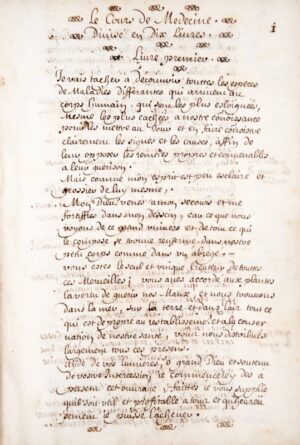 Le Cours de Medecine.
1
Divisé en Dix Livres.
Livre premier.
Je vais tacher a Découvrir toutes les especes
de Maladies differantes qui arrivent au
corps humain, qui sont les plus esloignées,
Mesme les plus cachés a nostre conoissance
pour les mettre au Jour et en faire conoitre
clairement les signes et les causes, affin de
leur opposer les remedes propres et convenables
a leur guerison.
Mais comme mon esprit est peu esclairé et
grossier de luy mesme;
Mon Dieu venez a mon secours et me
fortifiez dans mon dessein, car ce que nous
voyons de ce grand univers et de tout ce qui
le compose se trouve renfermé dans nostre
petit corps comme dans un abregé.
vous estes le seul et unique Createur de toutes
ces Merveilles; vous avez accordé aux plantes
la vertu de guerir nos Maux, et nous trouvons
dans la mer, sur la terre et dans l'air tout ce
qui est de propre au restablissement et a la conser
vation de nostre santé, vous nous distribuez
largement tous ces presens.
aydé de vos lumieres, o grand Dieu et soutenu
de vostre Intercession je commencerez des a
present cet ouvrage, faittes je vous supplie
qu'il soit util et profitable a tous et qu'heureu
sement je puisse l'achever.